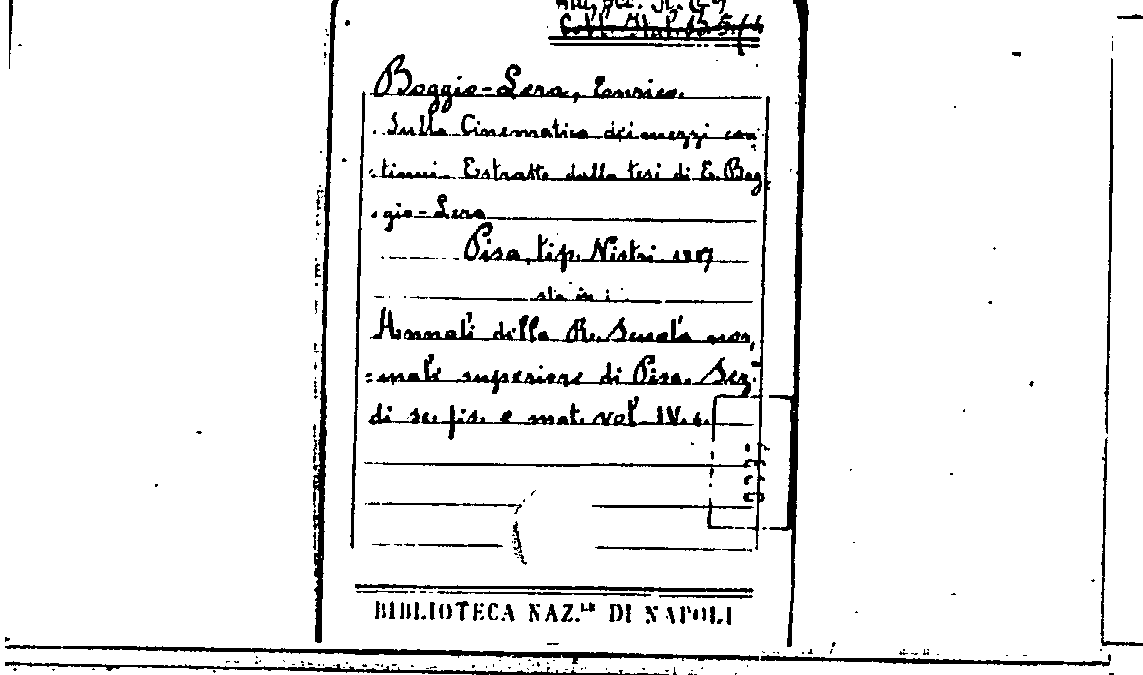 Boggio-Lera, Enrico.
Sulla Cinematica dei mezzi con
tinui. Estratto dalla tesi di E. Bog
gio-Lera
Pisa, tip. Nistri 1887
sta in:
Annali della R. Scuola nor,
=male superiore di Pisa. Sez.
di sc. fis. e mat. vol. IV.
BIBLIOTECA NAZ.LE DI NAPOLI